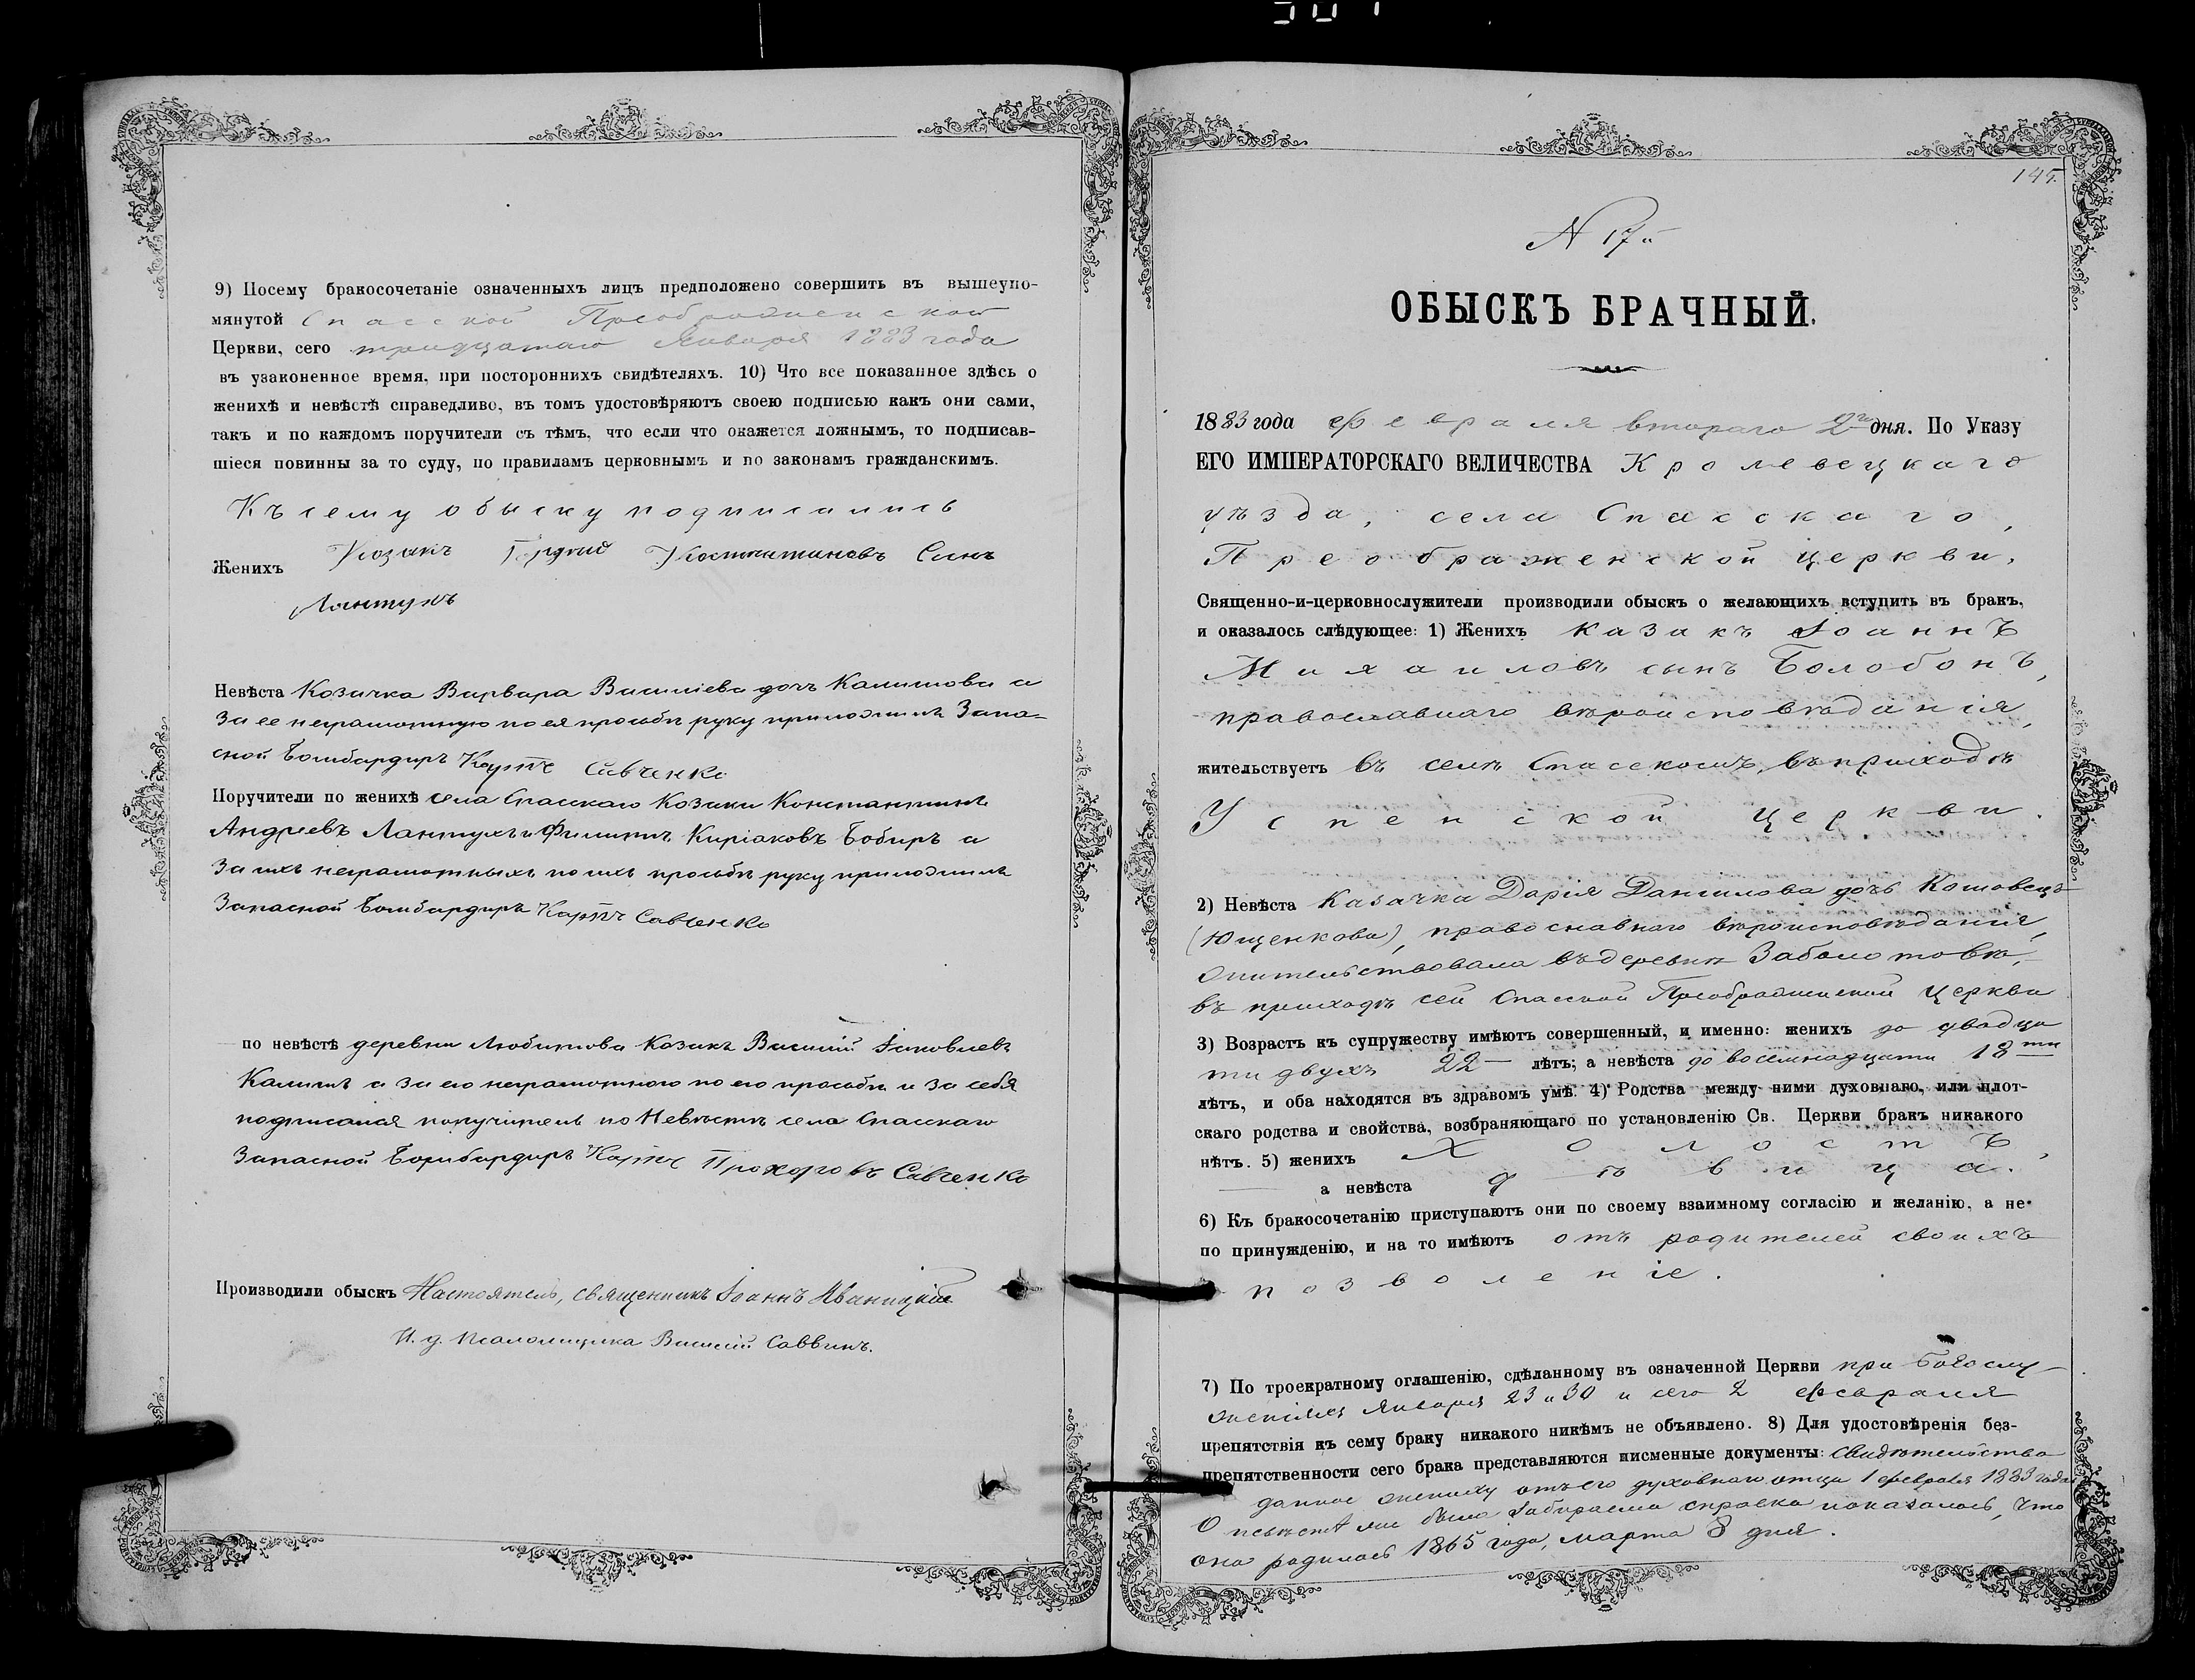 9) Посему бракосочетаніе означенныхъ лицъ предположено совершить въ вышеупо-
мянутой Спасской Преображенской
Церкви, сего тридцатаго Января 1883 года
въ узаконенное время, при постороннихъ свидѣтеляхъ. 10) Что все показанное здѣсь о
женихѣ и невѣстѣ справедливо, въ томъ удостовѣряютъ своею подписью какъ они сами,
такъ и по каждомъ поручители съ тѣмъ, что если что окажется ложнымъ, то подписав-
шіеся повинны за то суду, по правиламъ церковнымъ и по законамъ гражданскимъ.
Къ сему обыску подписались
Женихъ Козакъ Гордій Костантиновъ Синъ
Лантухъ
Невѣста Козачка Варвара Василіева дочь Калишова а
За ее неграмотную по ея прозьбѣ руку приложилъ Запа-
сной Бомбардиръ Карпъ Савченко
Поручители по женихѣ села Спасскаго Козаки Константинъ
Андреевъ Лантухъ и Филиппъ Киріаковъ Бобиръ а
За ихъ неграмотныхъ по ихъ прозьбѣ руку приложилъ
Запасной Бомбардиръ Карпъ Савченко
по невѣстѣ деревни Любитова Козакъ Василій Іаковлевъ
Калишъ а За его неграмотного по его прозьбѣ и За себя
подписался поручитель по Невѣстѣ села Спасскаго
Запасной Бомбардиръ Карпъ Прохоровъ Савченко
Производили обыскъ Настоятель, священникъ Іоаннъ Иваницкій
И. д. Псаломщика Василій Саввинъ.
145.
N 17й
ОБЫСКЪ БРАЧНЫЙ.
1883 года Февраля втораго 2го дня. По Указу
ЕГО ИМПЕРАТОРСКАГО ВЕЛИЧЕСТВА Кролевецкаго
уѣзда, села Спасскаго,
Преображенской церкви.
Священно-и-церковнослужители производили обыскъ о желающихъ вступить въ бракъ,
и оказалось слѣдующее: 1) Женихъ казакъ Іоаннъ
Михаиловъ сынъ Болобонъ,
православнаго вѣроисповѣданія,
жительствуетъ въ селѣ Спасскомъ, въ приходѣ
Успенской церкви.
2) Невѣста Казачка Дарія Даніилова дочь Кошовецъ
(Ющенкова), православнаго вѣроисповѣданія,
жительствовала въ деревнѣ Заболотовѣ,
въ приходѣ сей Спасской Преображенской церкви
3) Возрастъ къ супружеству имѣютъ совершенный, и именно: женихъ до двадца
ти двухъ 22 лѣтъ; а невѣста до восемнадцати 18ти
лѣтъ, и оба находятся въ здравомъ умѣ. 4) Родства между ними духовнаго, или плот-
скаго родства и свойства, возбраняющаго по установленію Св. Церкви бракъ никакого
нѣтъ. 5) женихъ Холостъ,
а невѣста дѣвица.
6) Къ бракосочетанію приступаютъ они по своему взаимному согласію и желанію, а не
по принужденію, и на то имѣютъ отъ родителей своихъ
позволеніе.
7) По троекратному оглашенію, сдѣланному въ означенной Церкви при богослу-
женіяхъ Января 23 и 30 и сего 2 февраля
препятствія къ сему браку никакого никѣмъ не объявлено. 8) Для удостовѣренія без-
препятственности сего брака представляются писменные документы: свидѣтельство
данное жениху отъ его духовнаго отца 1 февраля 1883 года
О невѣстѣ же была забираема справка показалось, что
она родилась 1865 года, марта 8 дня.